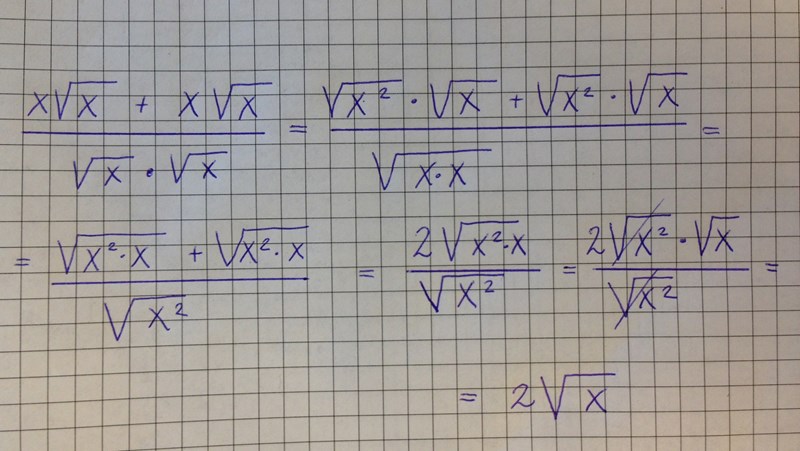 (x√x + x√x)/(√x · √x) = (√x² · √x + √x² · √x)/√(x·x) =
= (√(x²·x) + √(x²·x))/√x² = 2√(x²·x)/√x² = 2√x² · √x/√x² =
= 2√x